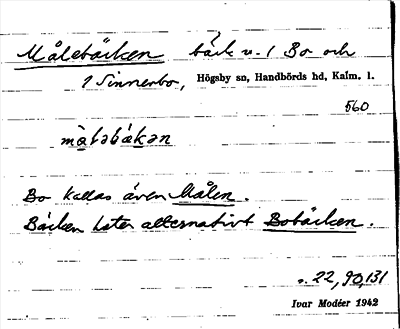 Målebäcken bäck u. 1 Bo och
1 Sinnerbo, Högsby sn, Handbörds hd, Kalm. l.
560
mȧləbäkən
Bo kallas även Målen.
Bäcken heter alternativt Bobäcken.
s. 22, 90, 131
Ivar Modéer 1942